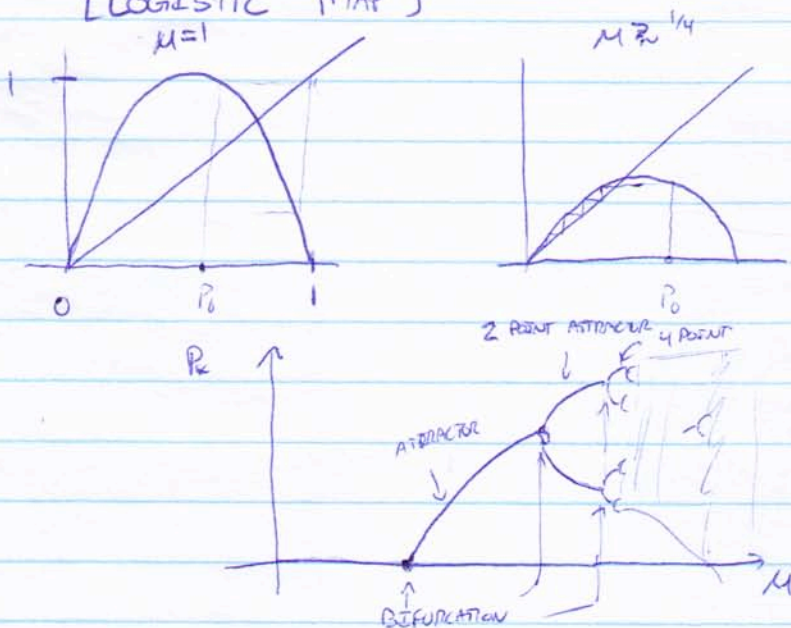 [LOGISTIC MAP]
μ=1
μ ≳ 1/4
1
0
P₀
1
P₀
2 POINT ATTRACTOR
4 POINT
Pₖ
ATTRACTOR
μ
BIFURCATION